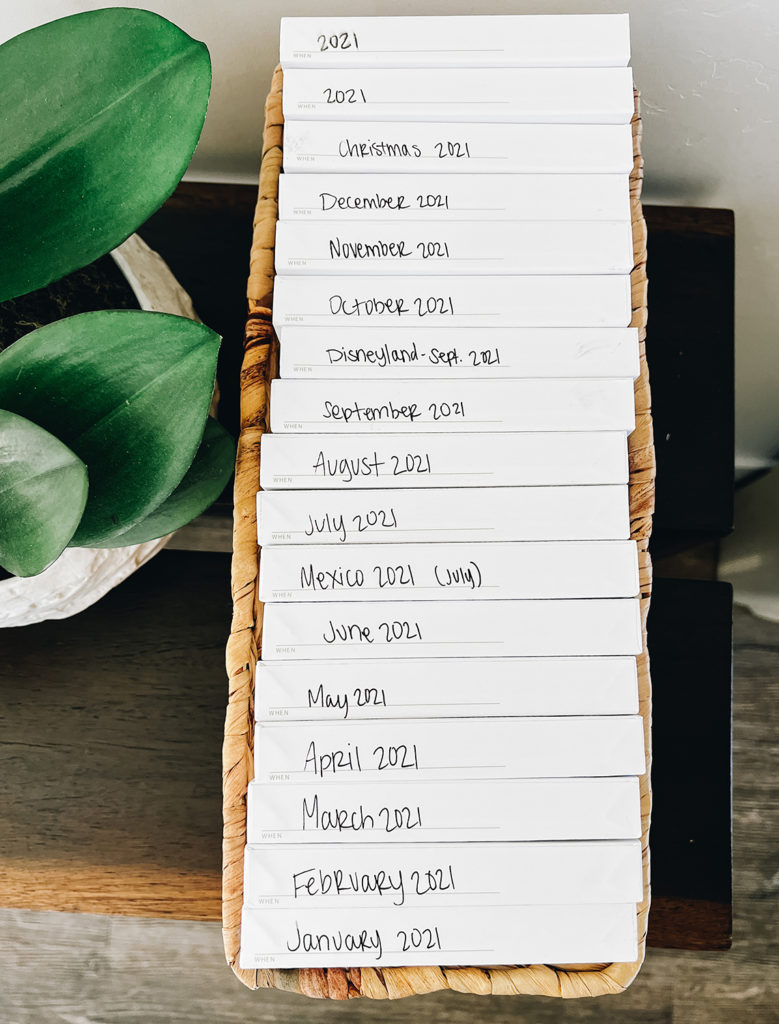 2021
WHEN
2021
WHEN
Christmas 2021
WHEN
December 2021
WHEN
November 2021
WHEN
October 2021
WHEN
Disneyland - Sept. 2021
WHEN
September 2021
WHEN
August 2021
WHEN
July 2021
WHEN
Mexico 2021 (July)
WHEN
June 2021
WHEN
May 2021
WHEN
April 2021
WHEN
March 2021
WHEN
February 2021
WHEN
January 2021
WHEN